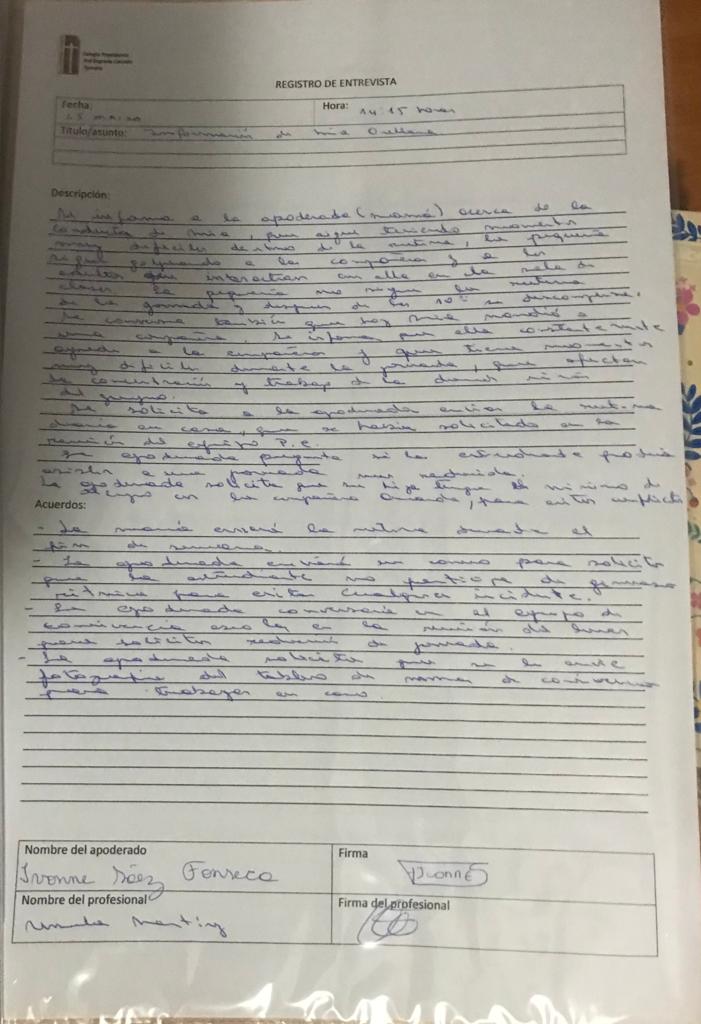 Colegio Providencia
Temuco
REGISTRO DE ENTREVISTA
Fecha: 25 marzo
Hora: 14:15 horas
Título/asunto: Información de Mia Orellana
Descripción:
Se informa a la apoderada (mamá) acerca de la
conducta de Mia, que sigue teniendo momentos
muy difíciles dentro de la rutina, la pequeña
sigue golpeando a la compañera y a los
adultos que interactúan con ella en la sala de
clases. La pequeña no sigue la rutina
de la jornada y después de las 10:00 se descompensa.
Se conversa también que hoy Mia mordió a
una compañera. Se informa que ella constantemente
agrede a la compañera y que tiene momentos
muy difíciles durante la jornada, que afectan
la concentración y trabajo de los demás niños
del grupo.
Se solicita a la apoderada enviar la rutina
diaria en casa, que se había solicitado en la
reunión del equipo P.E.
La apoderada pregunta si la estudiante podría
asistir a una jornada mas reducida.
La apoderada solicita que su hija tenga el mínimo de
con la compañera Amanda, para evitar conflictos
Acuerdos:
- La mamá enviará la rutina durante el
fin de semana.
- La apoderada enviará un correo para solicitar
que la estudiante no participe de gimnasia
rítmica para evitar cualquier incidente.
- La apoderada conversará con el equipo de
convivencia escolar en la reunión del lunes
para solicitar reducción de jornada.
- La apoderada solicita que se le envíe
fotografía del tablero de normas de convivencia
para trabajar en casa.
Nombre del apoderado
Ivonne Sáez Fonseca
Firma
Ivonne
Nombre del profesional
Firma del profesional